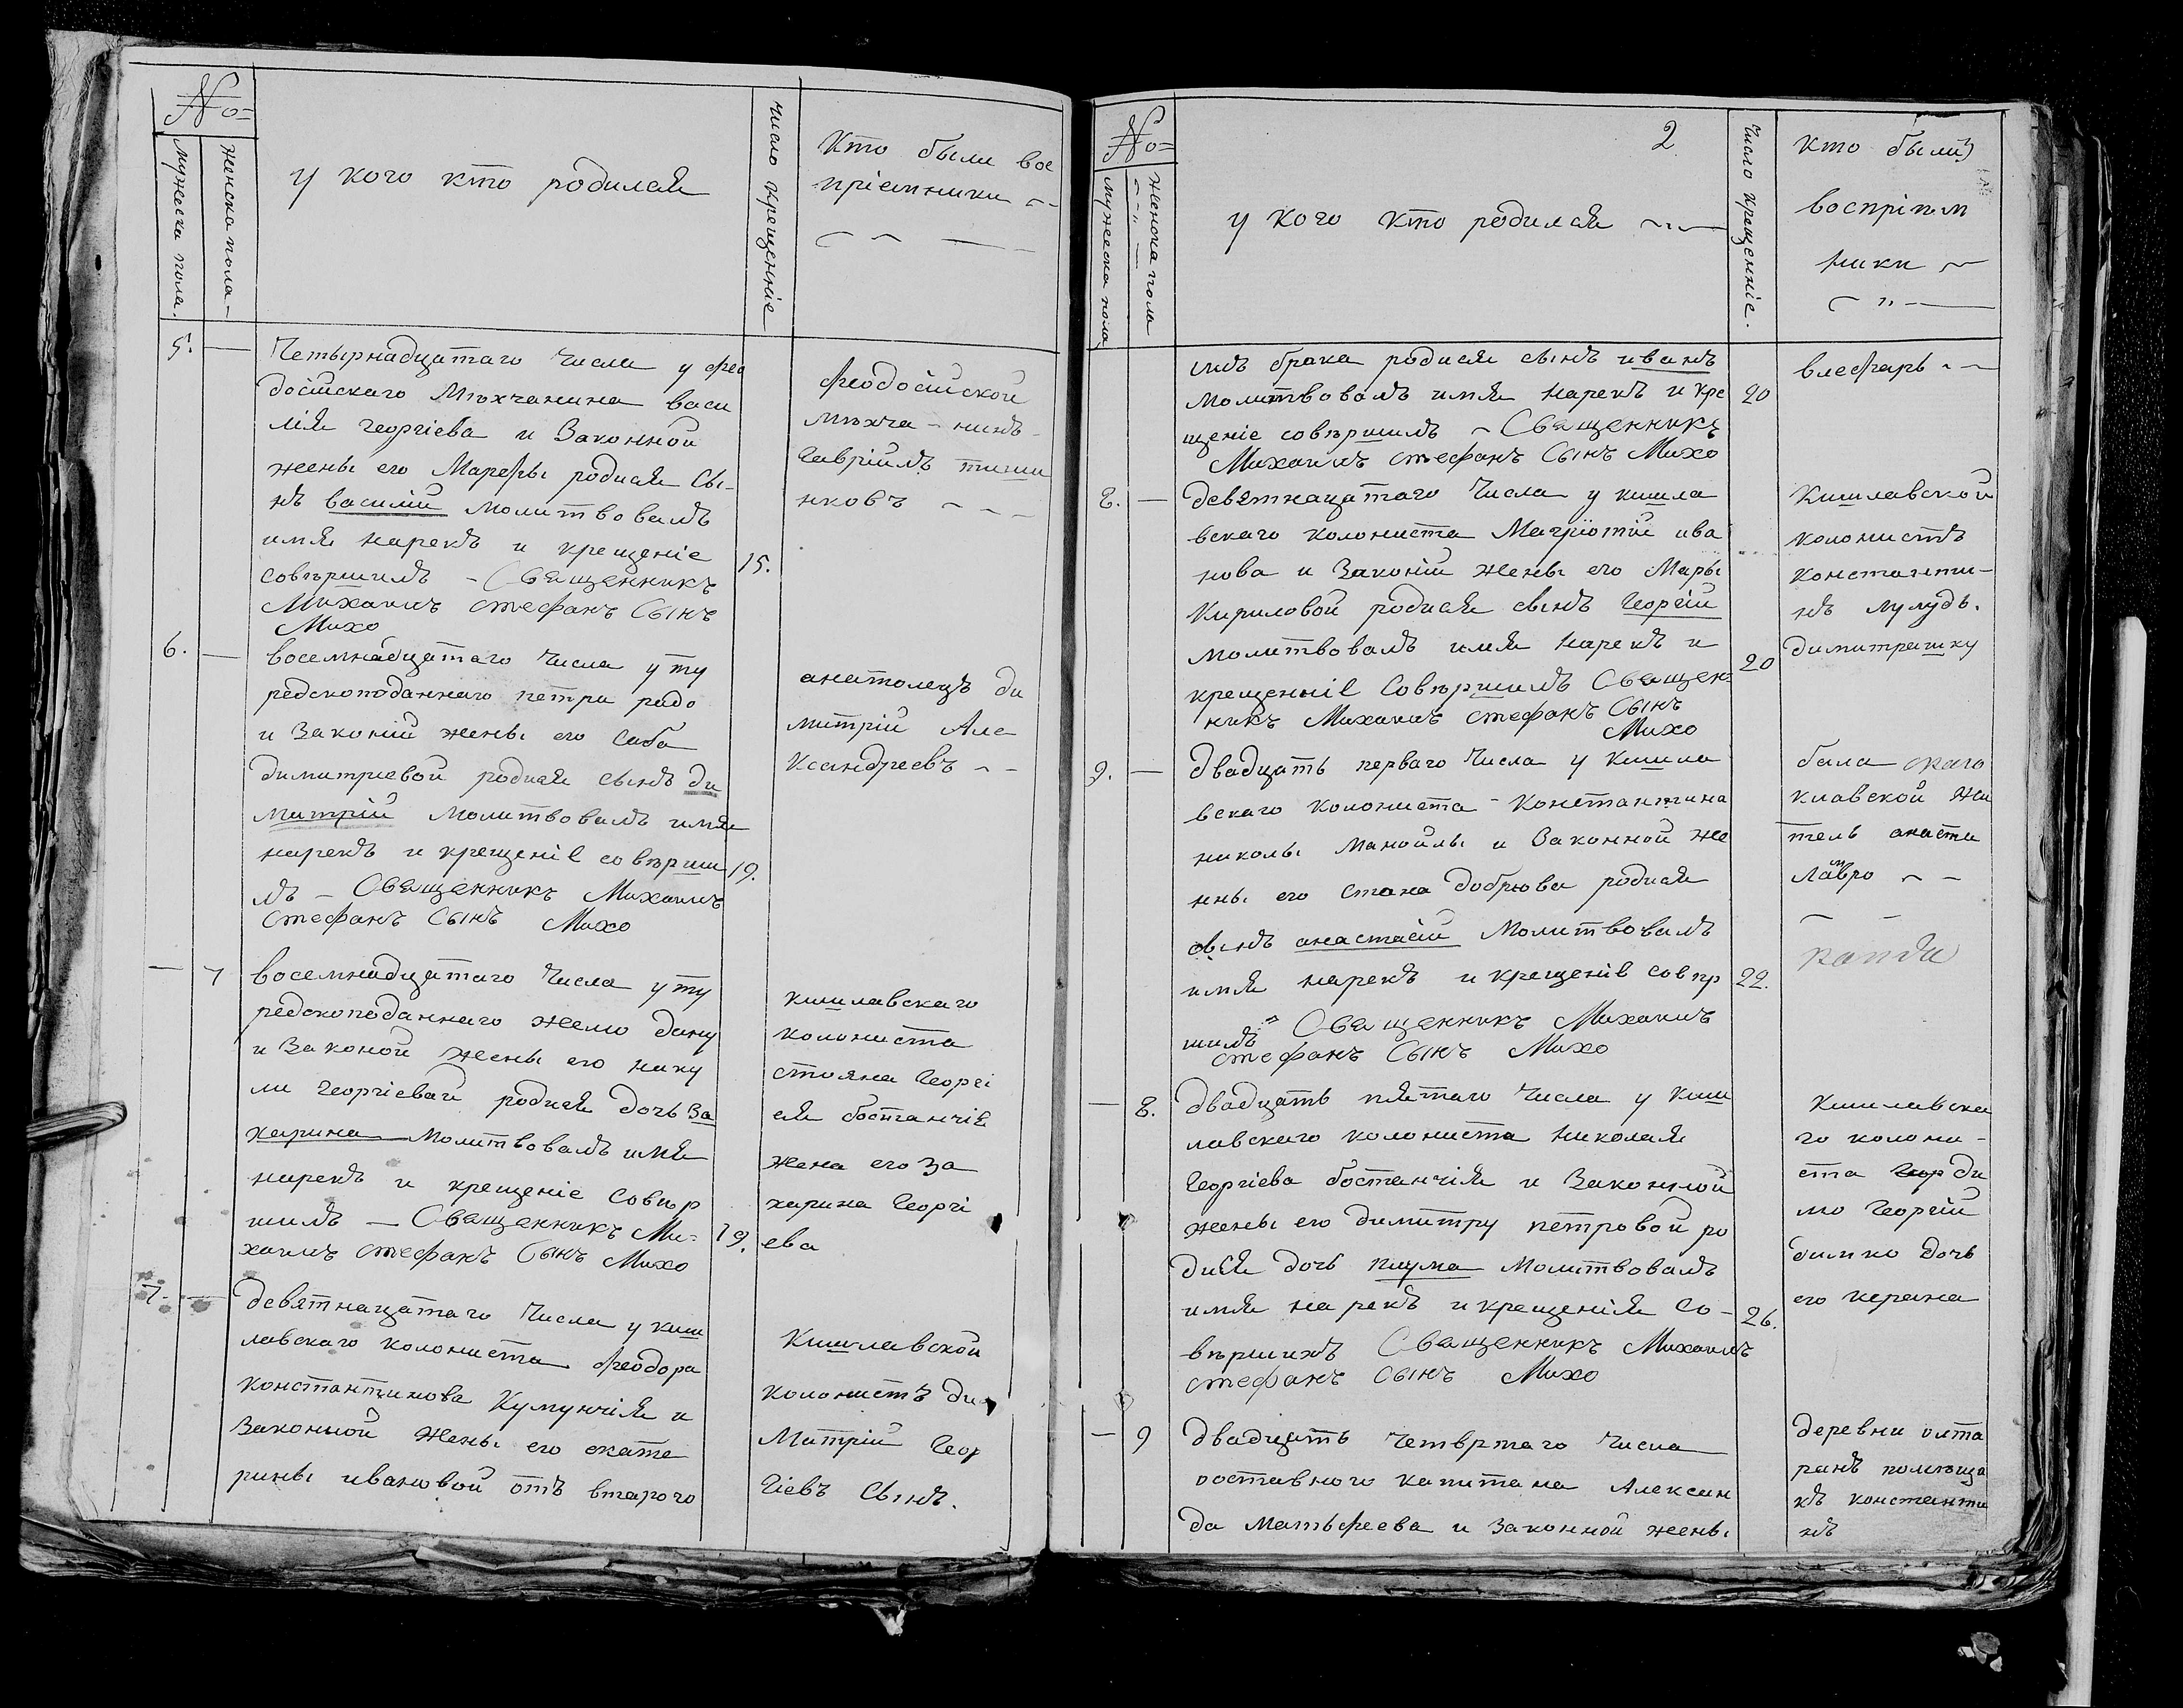 №
Мужеска пола.
Женска пола
У кого кто родился
число крещенніе
Кто были вос
пріемники
5.
Четырнадцатаго Числа у фео
досійскаго Мѣхчанина васи
лія георгіева и Законной
жены его Марефы родися Сы-
нъ василій молитвовалъ
имя нарекъ и крещеніе
совѣршилъ - Священникъ
Михаилъ стефанъ Сынъ
Михо
15.
феодосійской
мѣхча-нинъ
Гавріилъ
нковъ
6.
восемнадцатаго Числа у ту
редскоподаннаго петра радо
и Законій жены его Саба
димитриевой родися сынъ ди
митрій молитвовалъ имя
нарекъ и крещеніе совѣрши
лъ - Священникъ Михаилъ
стефанъ Сынъ Михо
19.
анатолецъ ди
митрій Але
Ксандреевъ
7
восемнадцатаго Числа у ту
редскоподаннаго желю дану
и Законой жены его нику
ли георгіевай родися дочь За
харина Молитвовалъ имя
нарекъ и крещеніе Совѣр
шилъ - Священникъ Ми-
хаилъ стефанъ Сынъ Михо
19.
кишлавскаго
колониста
стояна Георгі
ея бостанчіе
жена его За
харина Георгі
ева
7.
девятнацатаго Числа у киш
лавскаго колониста феодора
константинова Кумунчія и
Законной Жены его екате
рины ивановой отъ втарого
Кишлавской
колонистъ ди
Митрій Геор
гіевъ Сынъ.
№
Мужеска пола
Женска пола
2
у кого кто родился
Число крещенніе.
кто были
воспріем
ники
имъ брака родися сынъ иванъ
Молитвовалъ имя нарекъ и кре
щеніе совѣршилъ - Священникъ
Михаилъ стефанъ Сынъ Михо
20
влефарь
8.
девятнацатаго Числа у кишла
вскаго колониста ива
нова и Законій жены его Мары
Кириловой родися сынъ Георгій
молитвовалъ имя нарекъ и
крещенніе Совѣршилъ Священ-
никъ Михаилъ стефанъ Сынъ
Михо
20
Кишлавской
колонистъ
константи-
нъ лулудъ.
димитрашку
9.
двадцать перваго Числа у Кишла
вскаго колониста - Константина
николы Манойлы и Законной же
нны его стана добрюва родися
сынъ анастасій Молитвовалъ
имя нарекъ и крещеніе совѣр
шилъ Священникъ Михаилъ
стефанъ Сынъ Михо
22.
бала
клавской жи
тель анасти
Лавро
8.
двадцать пятаго Числа у Киш
лавскаго колониста николая
Георгіева бостанчія и Законной
жены его димитру петровой ро
дися дочь Молитвовалъ
имя нарекъ и крещенія Со-
вѣршилъ Священникъ Михаилъ
стефанъ Сынъ Михо
26.
Кишлавска
го колони-
ста Геор ди
мо Георгій
димко дочь
его керана
9
двадцать Четвртаго Числа
оставного капитана Алексан
да Матьфеева и Законной жены
деревни олта
ракъ помѣща
къ константи
нъ